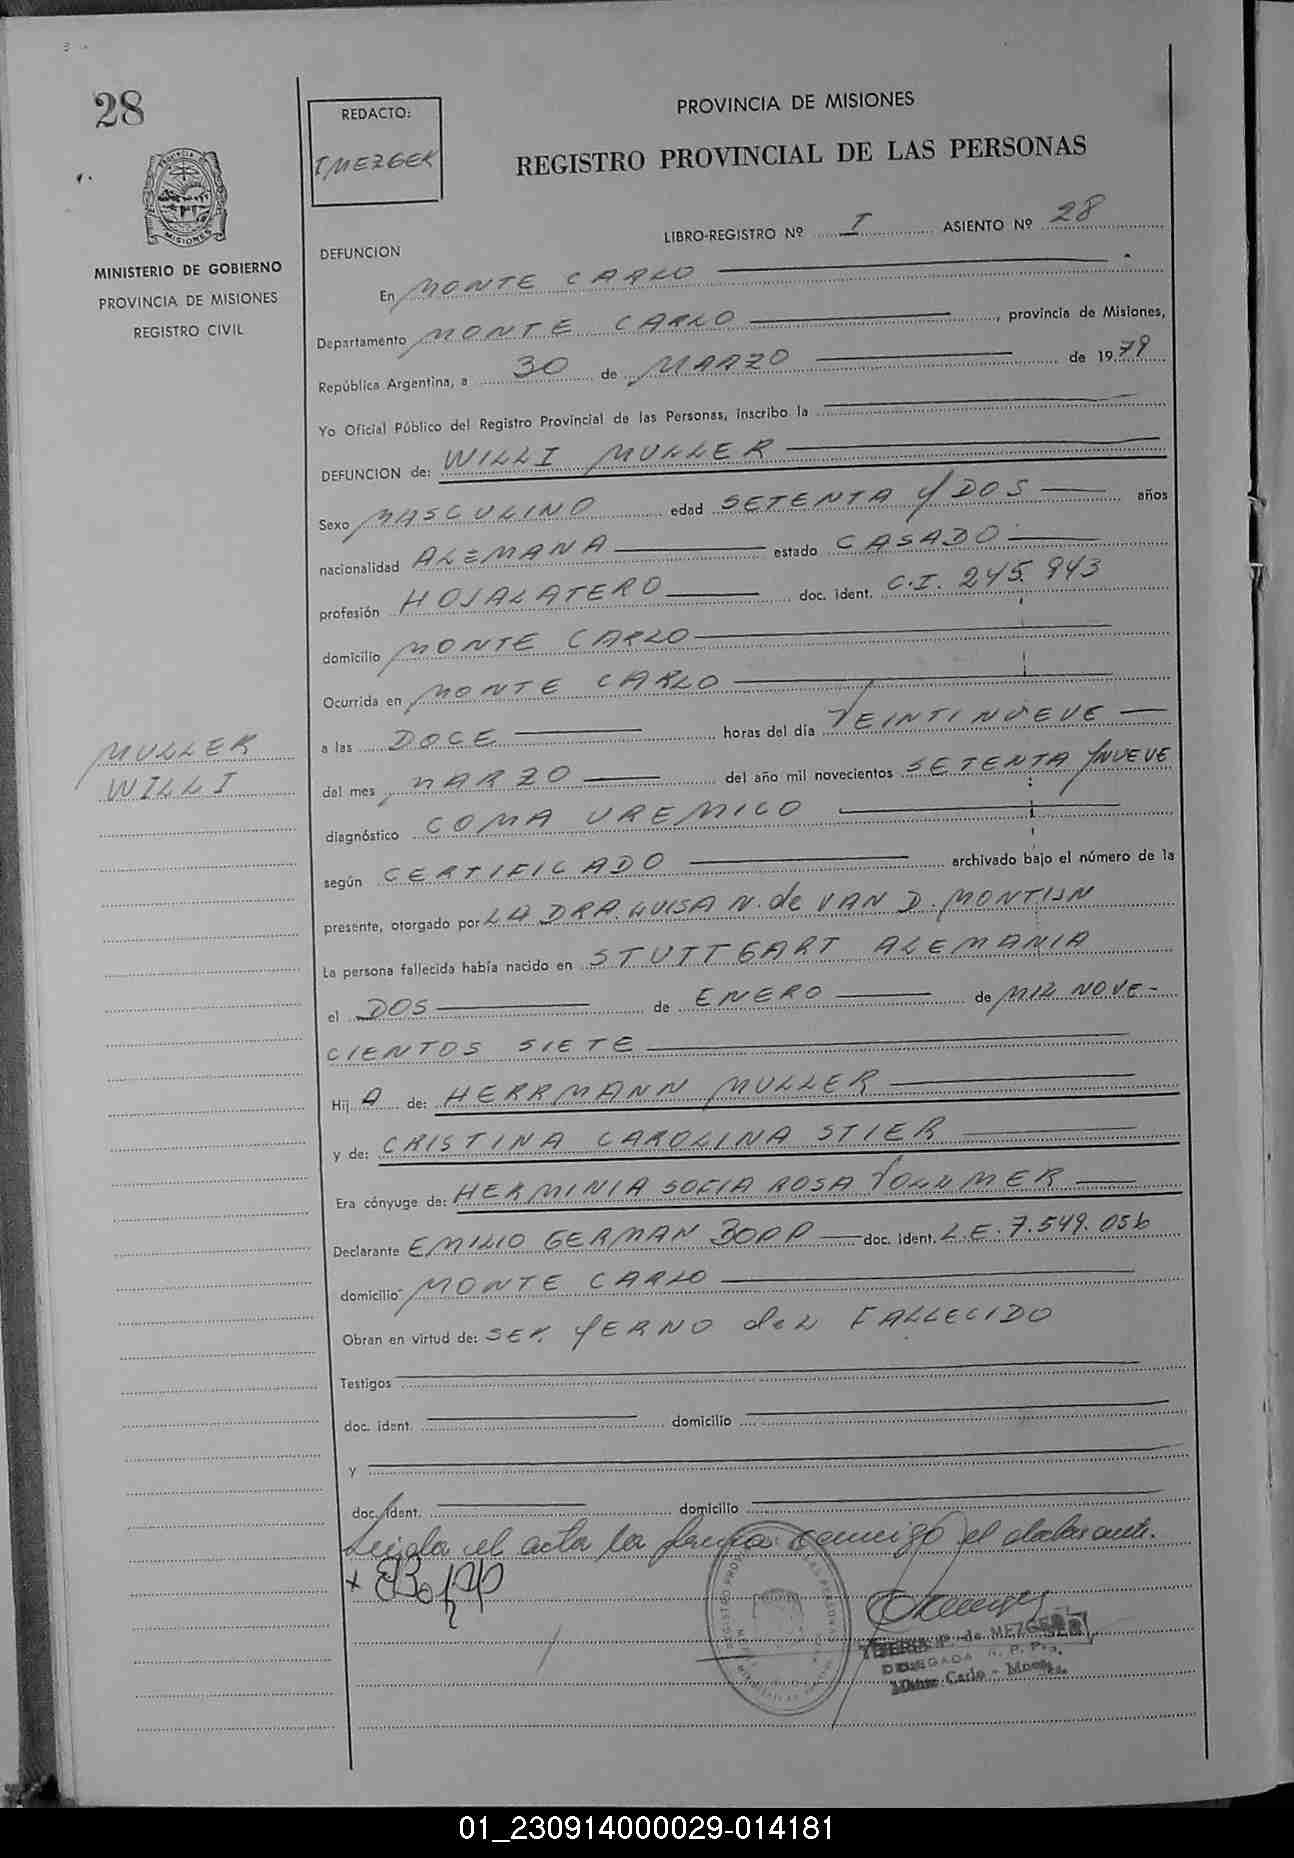 28
MINISTERIO DE GOBIERNO
PROVINCIA DE MISIONES
REGISTRO CIVIL
REDACTO:
I MEZGER
PROVINCIA DE MISIONES
REGISTRO PROVINCIAL DE LAS PERSONAS
LIBRO-REGISTRO Nº I ASIENTO Nº 28
DEFUNCION
En MONTE CARLO
Departamento MONTE CARLO, provincia de Misiones,
República Argentina, a 30 de MARZO de 1979
Yo Oficial Público del Registro Provincial de las Personas, inscribo la
DEFUNCION de: WILLI MULLER
Sexo MASCULINO edad SETENTA Y DOS años
nacionalidad ALEMANA estado CASADO
profesión HOJALATERO doc. ident. C.I. 245.943
domicilio MONTE CARLO
Ocurrida en MONTE CARLO
a las DOCE horas del día VEINTINUEVE
del mes MARZO del año mil novecientos SETENTA Y NUEVE
diagnóstico COMA UREMICO
según CERTIFICADO archivado bajo el número de la
presente, otorgado por LA DRA LUISA N. de VAN D. MONTIJN
La persona fallecida había nacido en STUTTGART ALEMANIA
el DOS de ENERO de MIL NOVE-
CIENTOS SIETE
Hij O de: HERRMANN MULLER
y de: CRISTINA CAROLINA STIER
Era cónyuge de: HERMINIA SOFIA ROSA VOLLMER
Declarante EMILIO GERMAN BOPP doc. ident. L.E. 7.549.056
domicilio MONTE CARLO
Obran en virtud de: SER YERNO deL FALLECIDO
Testigos
doc. ident. domicilio
y
doc. ident. domicilio
Leída el acta la firma conmigo el declarante.
MULLER
WILLI
MISIONES
de MEZGER
DELEGADA R. P. P.
Monte Carlo - Mnes.
01_230914000029-014181